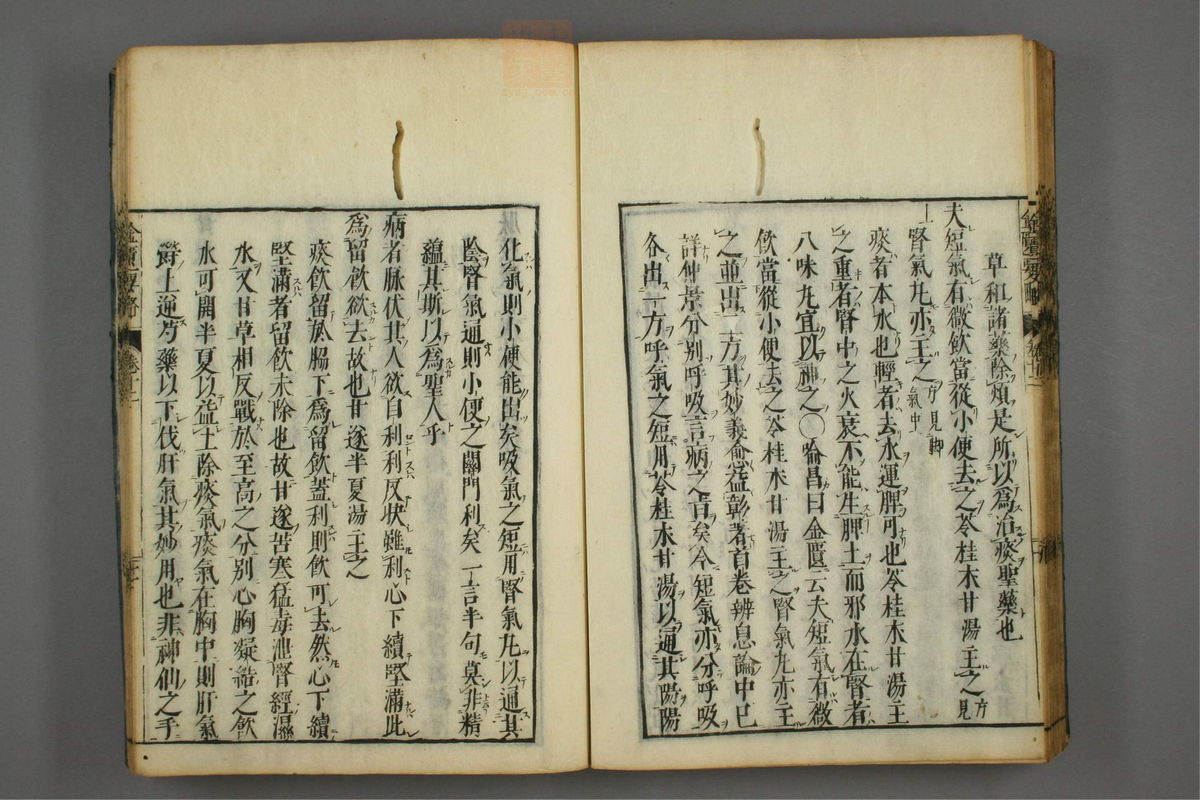 草和諸藥除煩是所以爲治痰聖藥也
夫短氣有微飲當從小便去之苓桂木甘湯主之方見
上腎氣丸亦主之方見脚氣中
痰者本水也輕者去水運脾可也苓桂木甘湯主
之重者腎中之火衰不能生脾土而邪水在腎者
八味丸宜以神之〇喻昌曰金匱云夫短氣有微
飲當從小便去之苓桂木甘湯主之腎氣丸亦主
之並出二方其妙義愈益彰著首卷辨息論中已
詳仲景分別呼吸言病之旨矣今短氣亦分呼吸
各出一方呼氣之短用苓桂木甘湯以通其陽陽
化氣則小便能出矣吸氣之短用腎氣丸以通其
陰腎氣通則小便之關門利矣一言半句莫非精
蘊其斯以爲聖人乎
病者脉伏其人欲自利利反快雖利心下續堅滿此
爲留飲欲去故也甘遂半夏湯主之
痰飲留於腸下爲留飲蓋利則飲可去然心下續
堅滿者留飲未除也故甘遂苦寒猛毒泄腎經濕
水又甘草相反戰於至高之分別心胸凝結之飲
水可開半夏以益土除痰氣痰氣在胸中則肝氣
上逆芍藥以下伐肝氣其妙用也非神仙之手